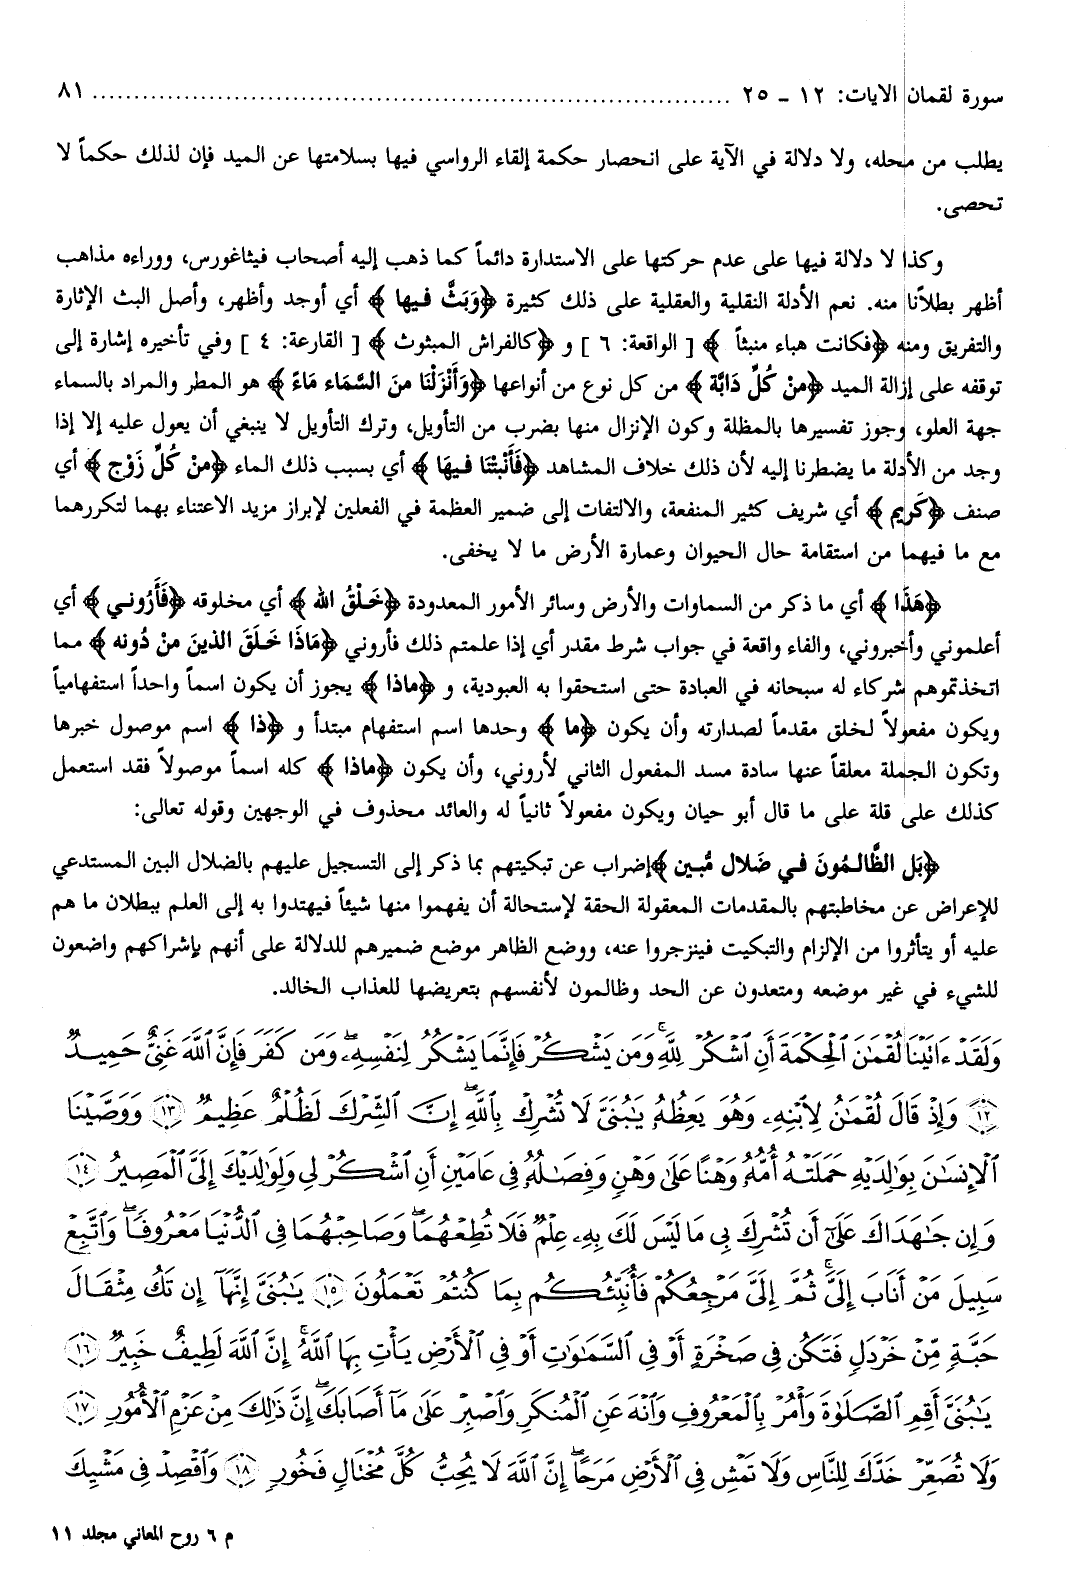 سورة لقمان الايات: ١٢ ـ ٢٥ ........................................................................ ٨١
يطلب من محله، ولا دلالة في الآية على انحصار حكمة إلقاء الرواسي فيها بسلامتها عن الميد فإن لذلك حكماً لا
تحصى.
وكذا لا دلالة فيها على عدم حركتها على الاستدارة دائماً كما ذهب إليه أصحاب فيثاغورس، ووراءه مذاهب
أظهر بطلاناً منه. نعم الأدلة النقلية والعقلية على ذلك كثيرة ﴿وَبَثَّ فـيها﴾ أي أوجد وأظهر، وأصل البث الإثارة
والتفريق ومنه ﴿فكانت هباء منبثاً﴾ [ الواقعة: ٦ ] و ﴿كالفراش المبثوث﴾ [ القارعة: ٤ ] وفي تأخيره إشارة إلى
توقفه على إزالة الميد ﴿منْ كُلِّ دَابَّة﴾ من كل نوع من أنواعها ﴿وَأَنْزَلْنَا منَ السَّمَاء مَاءً﴾ هو المطر والمراد بالسماء
جهة العلو، وجوز تفسيرها بالمظلة وكون الإنزال منها بضرب من التأويل، وترك التأويل لا ينبغي أن يعول عليه إلا إذا
وجد من الأدلة ما يضطرنا إليه لأن ذلك خلاف المشاهد ﴿فَأَنْبتْنَا فـيهَا﴾ أي بسبب ذلك الماء ﴿منْ كُلِّ زَوْج﴾ أي
صنف ﴿كَريم﴾ أي شريف كثير المنفعة، والالتفات إلى ضمير العظمة في الفعلين لإبراز مزيد الاعتناء بهما لتكررهما
مع ما فيهما من استقامة حال الحيوان وعمارة الأرض ما لا يخفى.
﴿هَذَا﴾ أي ما ذكر من السماوات والأرض وسائر الأمور المعدودة ﴿خَـلْقُ الله﴾ أي مخلوقه ﴿فَأَرُونـي﴾ أي
أعلموني وأخبروني، والفاء واقعة في جواب شرط مقدر أي إذا علمتم ذلك فأروني ﴿مَاذَا خَـلَقَ الذينَ منْ دُونه﴾ مما
اتخذتموهم شركاء له سبحانه في العبادة حتى استحقوا به العبودية، و ﴿ماذا﴾ يجوز أن يكون اسماً واحداً استفهامياً
ويكون مفعولاً لـخلق مقدماً لصدارته وأن يكون ﴿ما﴾ وحدها اسم استفهام مبتدأ و ﴿ذا﴾ اسم موصول خبرها
وتكون الجملة معلقاً عنها سادة مسد المفعول الثاني لأروني، وأن يكون ﴿ماذا﴾ كله اسماً موصولاً فقد استعمل
كذلك على قلة على ما قال أبو حيان ويكون مفعولاً ثانياً له والعائد محذوف في الوجهين وقوله تعالى:
﴿بَل الظَّالـمُونَ فـي ضَلال مُبين﴾ إضراب عن تبكيتهم بما ذكر إلى التسجيل عليهم بالضلال البين المستدعي
للإعراض عن مخاطبتهم بالمقدمات المعقولة الحقة لإستحالة أن يفهموا منها شيئاً فيهتدوا به إلى العلم ببطلان ما هم
عليه أو يتأثروا من الإلزام والتبكيت فينزجروا عنه، ووضع الظاهر موضع ضميرهم للدلالة على أنهم بإشراكهم واضعون
للشيء في غير موضعه ومتعدون عن الحد وظالمون لأنفسهم بتعريضها للعذاب الخالد.
وَلَقَدْ ءَاتَيْنَا لُقْمَٰنَ ٱلْحِكْمَةَ أَنِ ٱشْكُرْ لِلَّهِ ۚ وَمَن يَشْكُرْ فَإِنَّمَا يَشْكُرُ لِنَفْسِهِۦ ۖ وَمَن كَفَرَ فَإِنَّ ٱللَّهَ غَنِىٌّ حَمِيدٌ
۝١٢ وَإِذْ قَالَ لُقْمَٰنُ لِٱبْنِهِۦ وَهُوَ يَعِظُهُۥ يَٰبُنَىَّ لَا تُشْرِكْ بِٱللَّهِ ۖ إِنَّ ٱلشِّرْكَ لَظُلْمٌ عَظِيمٌ ۝١٣ وَوَصَّيْنَا
ٱلْإِنسَٰنَ بِوَٰلِدَيْهِ حَمَلَتْهُ أُمُّهُۥ وَهْنًا عَلَىٰ وَهْنٍ وَفِصَٰلُهُۥ فِى عَامَيْنِ أَنِ ٱشْكُرْ لِى وَلِوَٰلِدَيْكَ إِلَىَّ ٱلْمَصِيرُ ۝١٤
وَإِن جَٰهَدَاكَ عَلَىٰٓ أَن تُشْرِكَ بِى مَا لَيْسَ لَكَ بِهِۦ عِلْمٌ فَلَا تُطِعْهُمَا ۖ وَصَاحِبْهُمَا فِى ٱلدُّنْيَا مَعْرُوفًا ۖ وَٱتَّبِعْ
سَبِيلَ مَنْ أَنَابَ إِلَىَّ ۚ ثُمَّ إِلَىَّ مَرْجِعُكُمْ فَأُنَبِّئُكُم بِمَا كُنتُمْ تَعْمَلُونَ ۝١٥ يَٰبُنَىَّ إِنَّهَآ إِن تَكُ مِثْقَالَ
حَبَّةٍ مِّنْ خَرْدَلٍ فَتَكُن فِى صَخْرَةٍ أَوْ فِى ٱلسَّمَٰوَٰتِ أَوْ فِى ٱلْأَرْضِ يَأْتِ بِهَا ٱللَّهُ ۚ إِنَّ ٱللَّهَ لَطِيفٌ خَبِيرٌ ۝١٦
يَٰبُنَىَّ أَقِمِ ٱلصَّلَوٰةَ وَأْمُرْ بِٱلْمَعْرُوفِ وَٱنْهَ عَنِ ٱلْمُنكَرِ وَٱصْبِرْ عَلَىٰ مَآ أَصَابَكَ ۖ إِنَّ ذَٰلِكَ مِنْ عَزْمِ ٱلْأُمُورِ ۝١٧
وَلَا تُصَعِّرْ خَدَّكَ لِلنَّاسِ وَلَا تَمْشِ فِى ٱلْأَرْضِ مَرَحًا ۖ إِنَّ ٱللَّهَ لَا يُحِبُّ كُلَّ مُخْتَالٍ فَخُورٍ ۝١٨ وَٱقْصِدْ فِى مَشْيِكَ
م ٦ روح المعاني مجلد ١١